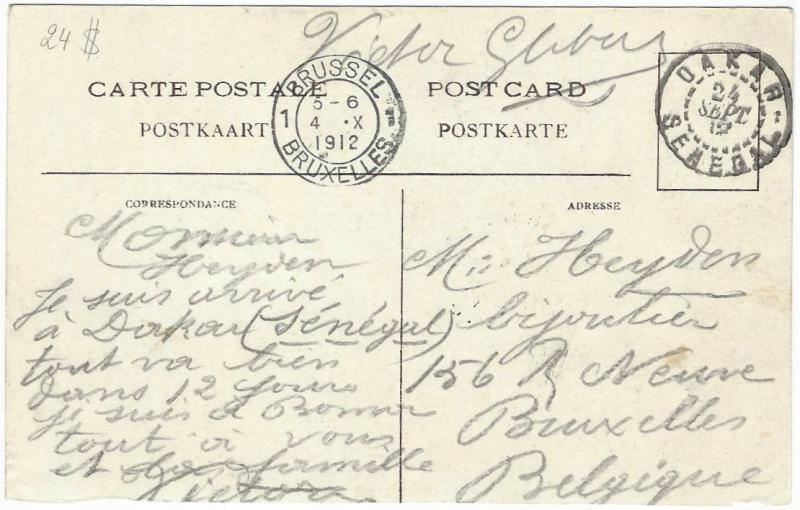 24 $
Victor
CARTE POSTALE
POST CARD
POSTKAART
POSTKARTE
BRUSSEL
1
5-6
4 · X
1912
BRUXELLES
DAKAR
24
SEPT
12
SENEGAL
CORRESPONDANCE
Monsieur
Heyden
Je suis arrivé
à Dakar (Sénégal)
tout va bien
dans 12 jours
je suis à Boma
tout à vous
et famille
Victor
ADRESSE
Mr Heyden
bijoutier
156 R Neuve
Bruxelles
Belgique